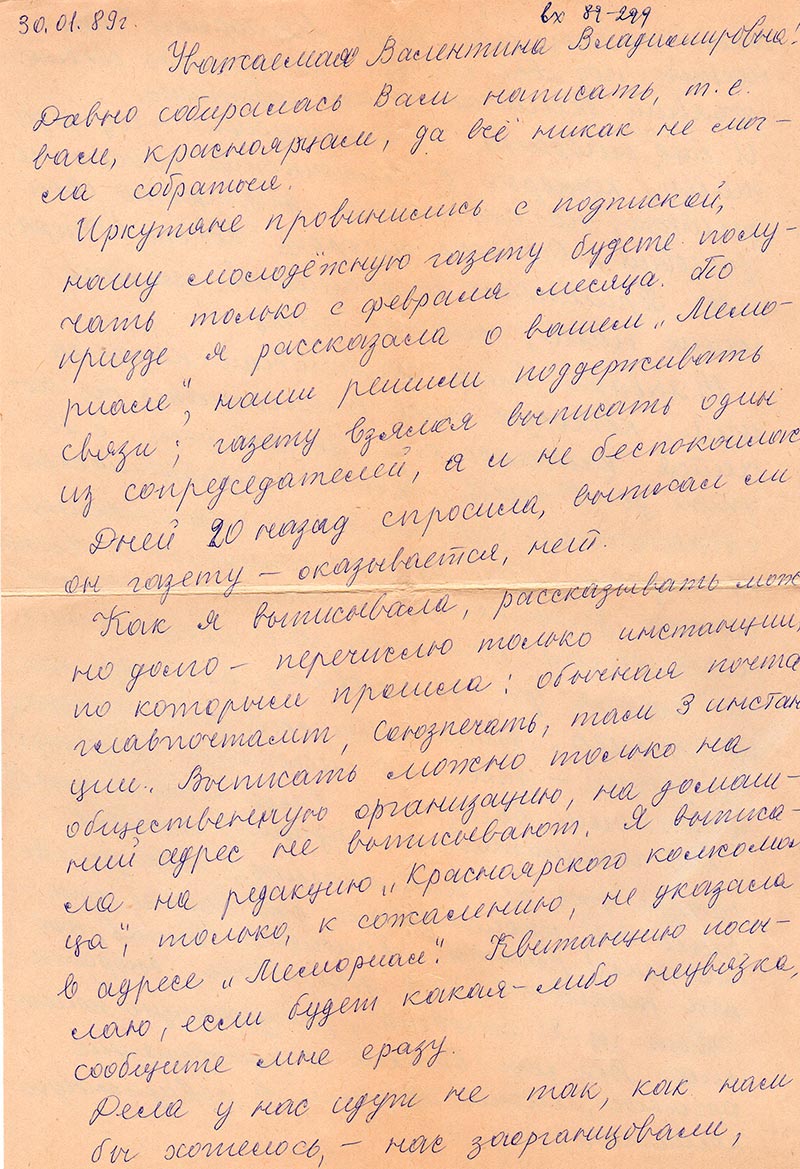 30.01.89г.
вх 89-299
Уважаемая Валентина Владимировна!
Давно собиралась Вам написать, т.е.
вам, красноярцам, да всё никак не мог-
ла собраться.
Иркутяне провинились с подпиской,
нашу молодёжную газету будете полу-
чать только с февраля месяца. По
приезде я рассказала о вашем „Мемо-
риале“, наши решили поддерживать
связи; газету взялся выписать один
из сопредседателей, я и не беспокоилась
Дней 20 назад спросила, выписал ли
он газету – оказывается, нет.
Как я выписывала, рассказывать мож
но долго – перечислю только инстанции,
по которым прошла: обычная почта
главпочтамт, Союзпечать, там 3 инстан
ции. Выписать можно только на
общественную организацию, на домаш-
ний адрес не выписывают. Я выписа-
ла на редакцию „Красноярского комсомол
ца“, только, к сожалению, не указала
в адресе „Мемориал“. Квитанцию посы-
лаю, если будет какая-либо неувязка,
сообщите мне сразу.
Дела у нас идут не так, как нам
бы хотелось, – нас заорганизовали,